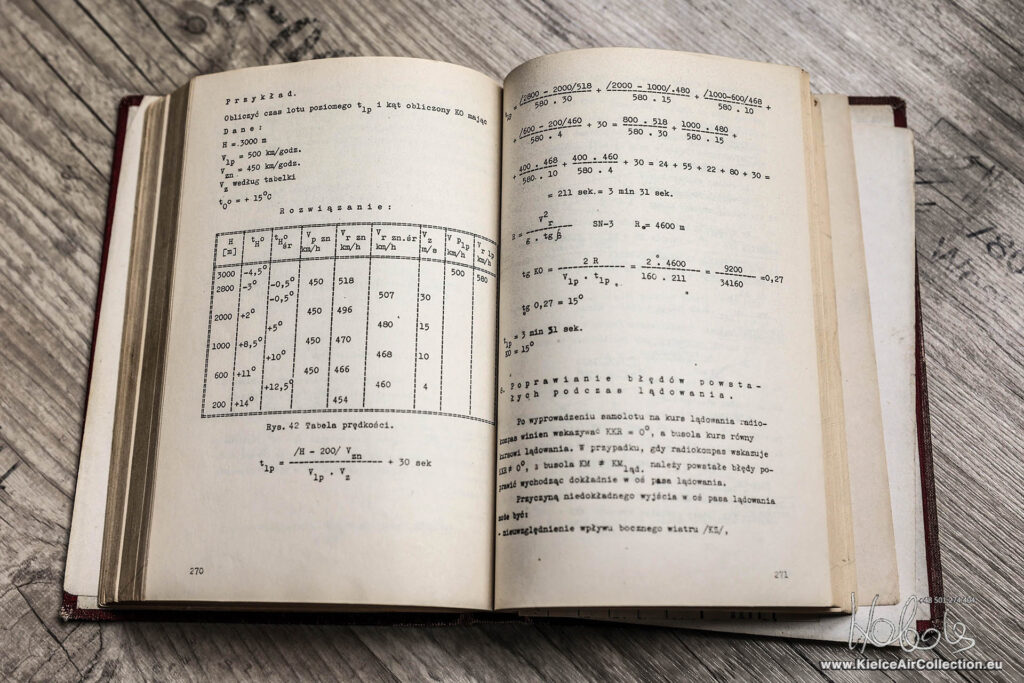 P r z y k ł a d.
Obliczyć czas lotu poziomego t lp i kąt obliczony KO mając
D a n e :
H = 3000 m
V lp = 500 km/godz.
V zn = 450 km/godz.
V z według tabelki
t o ° = + 15°C
R o z w i ą z a n i e :
H [m] t H ° t H ° śr V p zn km/h V r zn km/h V r zn.śr km/h V z m/s V p lp km/h V r lp km/h
3000 -4,5° 500 580
2800 -3° -0,5° 450 518
-0,5° 507 30
2000 +2° 450 496
+5° 480 15
1000 +8,5° 450 470
+10° 468 10
600 +11° 450 466
+12,5° 460 4
200 +14° 454
Rys. 42 Tabela prędkości.
t lp = /H - 200/ V zn / V lp . V z + 30 sek
270
t lp = /2800 - 2000/518 / 580 . 30 + /2000 - 1000/.480 / 580 . 15 + /1000-600/468 / 580 . 10 +
+ /600 - 200/460 / 580 . 4 + 30 = 800 . 518 / 580 . 30 + 1000 . 480 / 580 . 15 +
+ 400 . 468 / 580 . 10 + 400 . 460 / 580 . 4 + 30 = 24 + 55 + 22 + 80 + 30 =
= 211 sek.= 3 min 31 sek.
R = V r ² / g . tg β SN-3 R = 4600 m
tg KO = 2 R / V lp . t lp = 2 . 4600 / 160 . 211 = 9200 / 34160 =0,27
tg 0,27 = 15°
t lp = 3 min 31 sek.
KO = 15°
6. P o p r a w i a n i e b ł ę d ó w p o w s t a -
ł y c h p o d c z a s l ą d o w a n i a .
Po wyprowadzeniu samolotu na kurs lądowania radio-
kompas winien wskazywać KKR = 0°, a busola kurs równy
kursowi lądowania. W przypadku, gdy radiokompas wskazuje
KKR ≠ 0°, a busola KM ≠ KM ląd. należy powstałe błędy po-
prawić wychodząc dokładnie w oś pasa lądowania.
Przyczyną niedokładnego wyjścia w oś pasa lądowania
może być:
- nieuwzględnienie wpływu bocznego wiatru /KZ/,
271
www.KielceAirCollection.eu